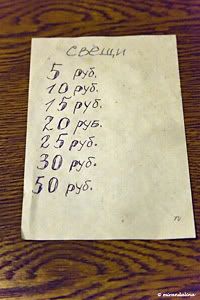 свещи
5 руб.
10 руб.
15 руб.
20 руб.
25 руб.
30 руб.
50 руб.
© mirandalina